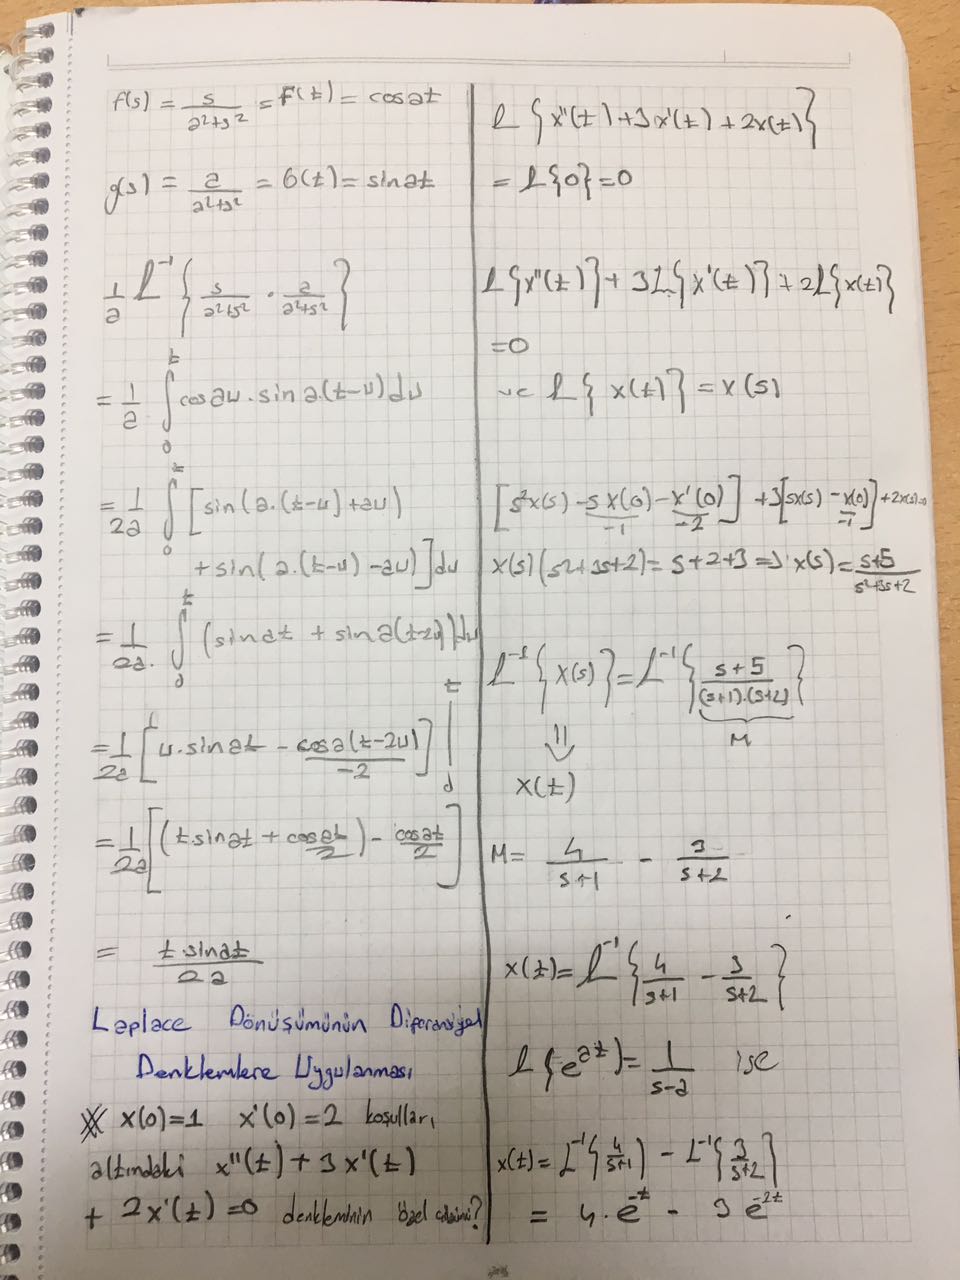 f(s) = s/(a²+s²) = F(t) = cosat
g(s) = a/(a²+s²) = G(t) = sinat
1/a L⁻¹ { s/(a²+s²) · a/(a²+s²) }
= 1/a ∫₀ᵗ cosau · sin a·(t-u) du
= 1/2a ∫₀ᵗ [ sin(a·(t-u) + au)
+ sin( a·(t-u) - au) ] du
= 1/2a · ∫₀ᵗ (sinat + sina(t-2u)) du
= 1/2a [ u·sinat - cosa(t-2u)/-2 ] |₀ᵗ
= 1/2a [ (t·sinat + cosat/2) - cosat/2 ]
= t·sinat/2a
Laplace Dönüşümünün Diferansiyel
Denklemlere Uygulanması
x(0)=1 x'(0)=2 koşulları
altındaki x''(t) + 3x'(t)
+ 2x'(t) = 0 denkleminin özel çözümü?
L { x''(t) + 3x'(t) + 2x(t) }
= L{0} = 0
L{x''(t)} + 3L{x'(t)} + 2L{x(t)}
= 0
ve L{ x(t) } = x(s)
[s²x(s) - sx(0) - x'(0)] + 3[sx(s) - x(0)] + 2x(s)=0
-1 -2 -1
x(s)(s²+3s+2) = s+2+3 ⇒ x(s) = s+5/(s²+3s+2)
L⁻¹ { x(s) } = L⁻¹ { s+5/((s+1)·(s+2)) }
M
⇓
x(t)
M = 4/(s+1) - 3/(s+2)
x(t) = L⁻¹ { 4/(s+1) - 3/(s+2) }
L{eᵃᵗ} = 1/(s-a) ise
x(t) = L⁻¹{4/(s+1)} - L⁻¹{3/(s+2)}
= 4·e⁻ᵗ - 3e⁻²ᵗ